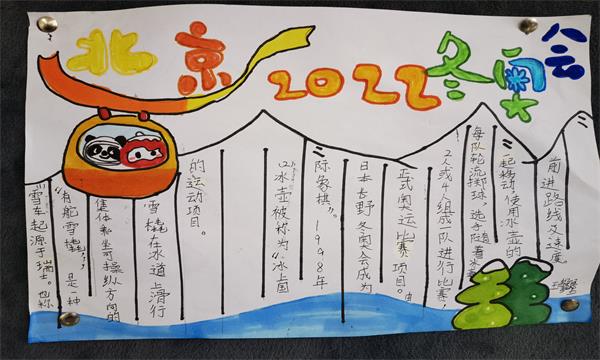 北京2022冬奥会
雪车起源于瑞士。也称
“有舵雪橇”,是一种
集体乘坐可操纵方向的
雪橇在冰道上滑行
的运动项目。
冰壶被称为“冰上国
际象棋”。1998年
日本长野冬奥会成为
正式奥运比赛项目。由
2人或4人组成一队进行比赛,
每队轮流掷球,选手随着
一起移动,使用冰壶的
前进路线及速度